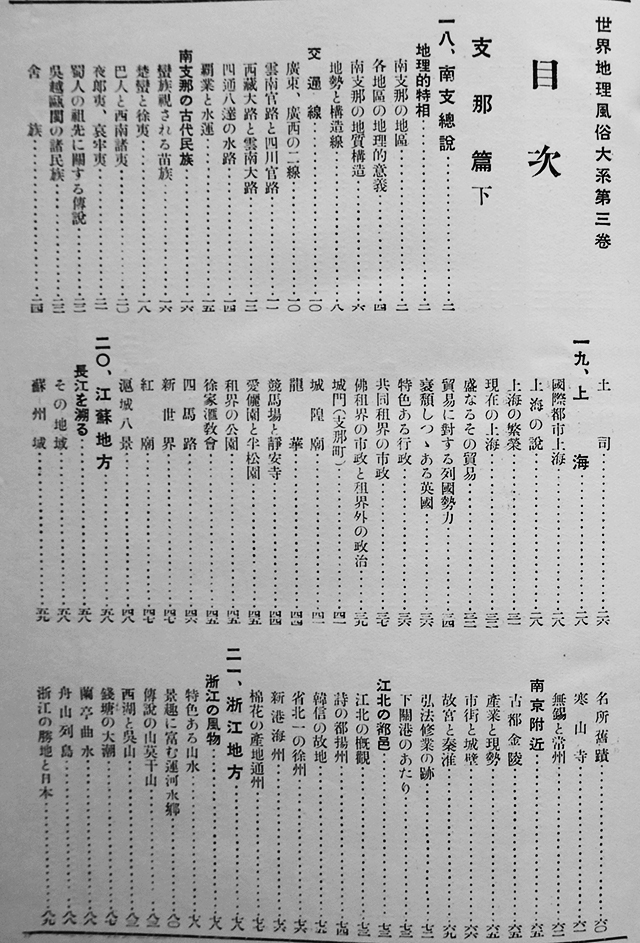 世界地理風俗大系第三卷
目次
支那篇下
一八、南支總說
地理的特相‥‥‥二
南支那の地區‥‥‥二
各地區の地理的意義‥‥‥四
南支那の地質構造‥‥‥六
地勢と構造線‥‥‥八
交通線‥‥‥一〇
廣東、廣西の二線‥‥‥一〇
雲南官路と四川官路‥‥‥一一
西藏大路と雲南大路
四通八達の水路‥‥‥一四
覇業と水運‥‥‥一五
南支那の古代民族‥‥‥一六
蠻族視される苗族‥‥‥一六
楚蠻と徐夷‥‥‥一八
巴人と西南諸夷‥‥‥二〇
夜郎夷、哀牢夷‥‥‥二一
蜀人の祖先に關する傳說
吳越甌閩の諸民族
畬族‥‥‥二四
土司‥‥‥二六
一九、上海‥‥‥二八
國際都市上海‥‥‥二八
上海の說‥‥‥二八
上海の繁榮
現在の上海
盛なるその貿易
貿易に對する列國勢力‥‥‥三四
衰頽しつゝある英國‥‥‥三六
特色ある行政‥‥‥三六
共同租界の市政‥‥‥三七
佛租界の市政と租界外の政治‥‥‥三九
城門(支那町)‥‥‥四一
城隍廟‥‥‥四一
龍華‥‥‥四四
競馬場と靜安寺‥‥‥四四
愛儷園と半松園‥‥‥四五
租界の公園‥‥‥四五
徐家滙敎會‥‥‥四五
四馬路‥‥‥四六
新世界‥‥‥四七
紅廟‥‥‥四七
滬城八景‥‥‥四八
二〇、江蘇地方‥‥‥五八
長江を溯る‥‥‥五八
その地域‥‥‥五八
蘇州城‥‥‥五九
名所舊蹟‥‥‥六〇
寒山寺‥‥‥六一
無錫と常州
南京附近
古都金陵‥‥‥六五
產業と現勢‥‥‥六五
市街と城壁‥‥‥六六
故宮と秦淮‥‥‥六九
弘法修業の跡
下關港のあたり
江北の都邑
江北の槪觀
詩の都揚州‥‥‥七四
韓信の故地‥‥‥七五
省北一の徐州‥‥‥七六
新港海州‥‥‥七六
棉花の產地通州‥‥‥七七
二一、浙江地方‥‥‥七八
浙江の風物‥‥‥七八
特色ある山水‥‥‥七八
景趣に富む運河水鄕‥‥‥八〇
傳說の山莫干山
西湖と吳山
錢塘の大潮‥‥‥八七
蘭亭曲水‥‥‥八八
舟山列島‥‥‥八八
浙江の勝地と日本‥‥‥八九